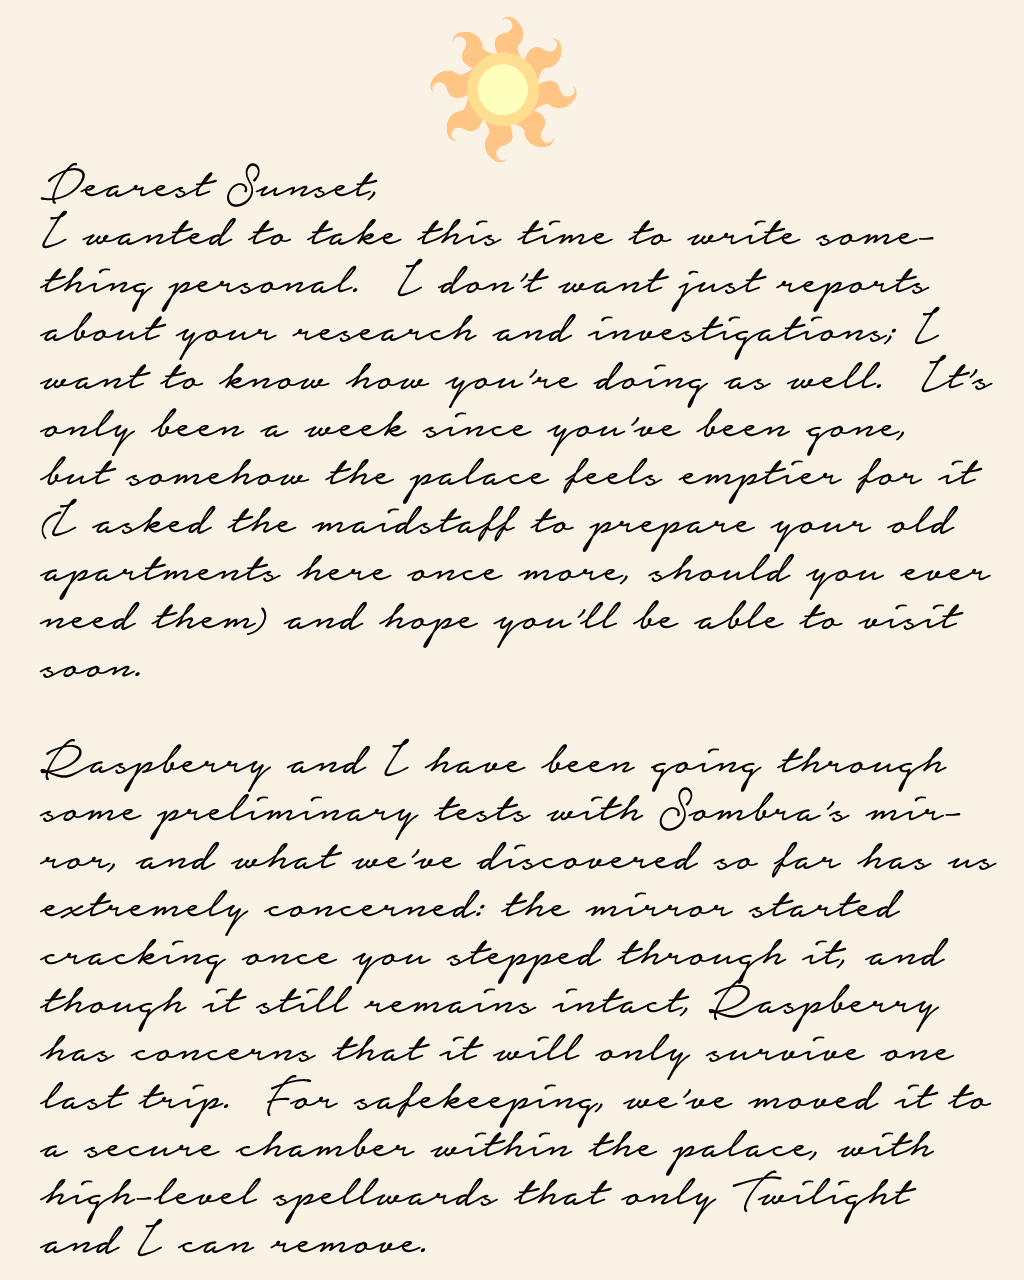 Dearest Sunset,
I wanted to take this time to write some-
thing personal.  I don't want just reports
about your research and investigations; I
want to know how you're doing as well.  It's
only been a week since you've been gone,
but somehow the palace feels emptier for it
(I asked the maidstaff to prepare your old
apartments here once more, should you ever
need them) and hope you'll be able to visit
soon.

Raspberry and I have been going through
some preliminary tests with Sombra's mir-
ror, and what we've discovered so far has us
extremely concerned: the mirror started
cracking once you stepped through it, and
though it still remains intact, Raspberry
has concerns that it will only survive one
last trip.  For safekeeping, we've moved it to
a secure chamber within the palace, with
high-level spellwards that only Twilight
and I can remove.